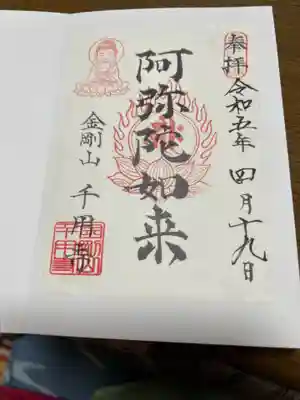 奉拝
令和五年 四月十九日
阿弥陀如来
金剛山 千用寺